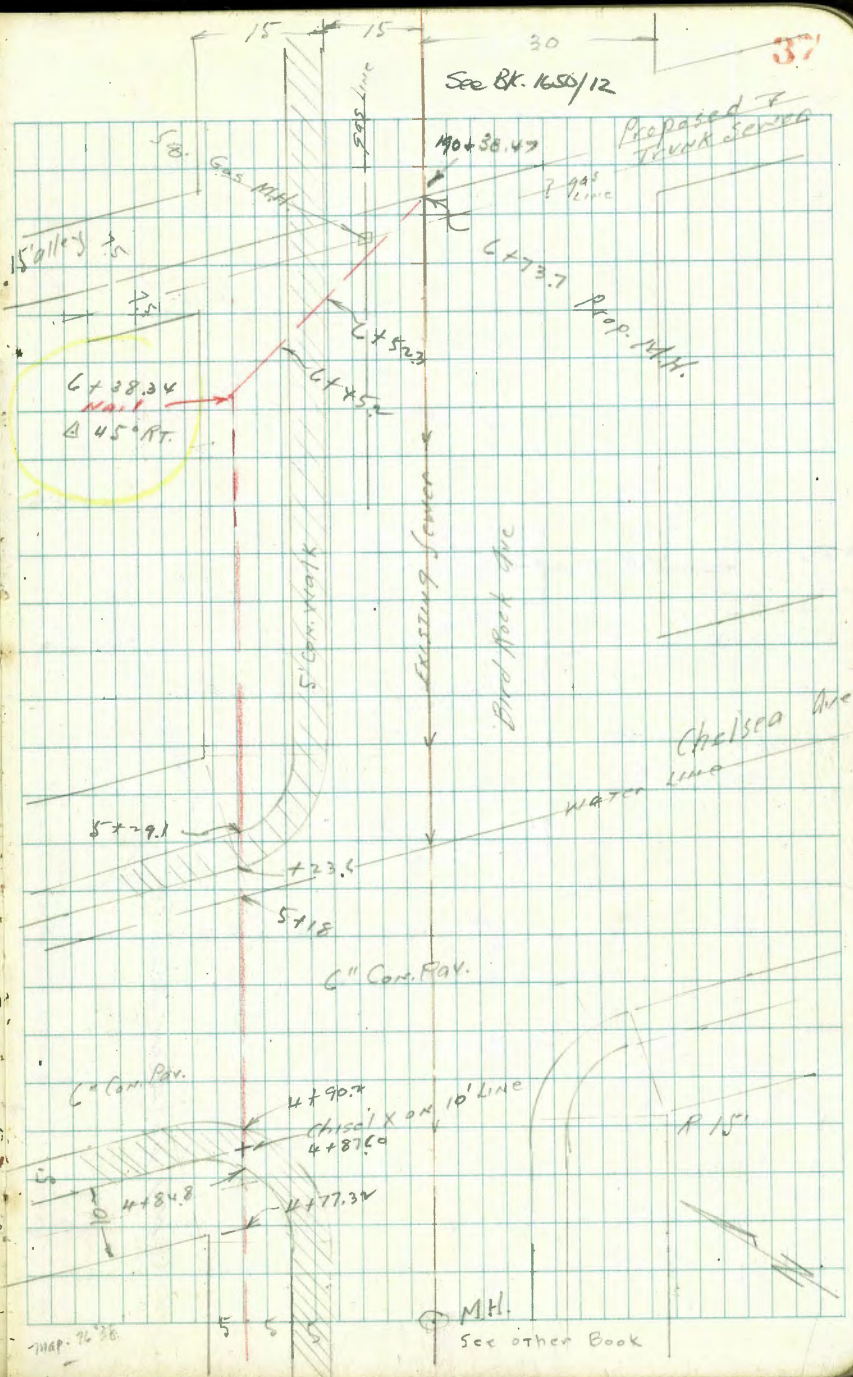 37
15
15
30
See BK. 1650/12
gas Line
Proposed
Trunk Sewer
Gas M.H.
190+38.47
? gas
Line
15' alley
7.5
7.5
6+73.7
Prop. M.H.
6+52.3
6+45.2
6+38.34
Nail
Δ 45° RT.
5' Con. Walk
Existing Sewer
Bird Rock Ave
Chelsea Ave
Water Line
5+29.1
+23.6
5+18
6" Con. Pav.
6" Con. Pav.
4+90.2
Chisel X on 10' Line
4+87.60
R 15'
5
10
4+84.8
4+77.32
N
5 5 5
M.H.
See other Book